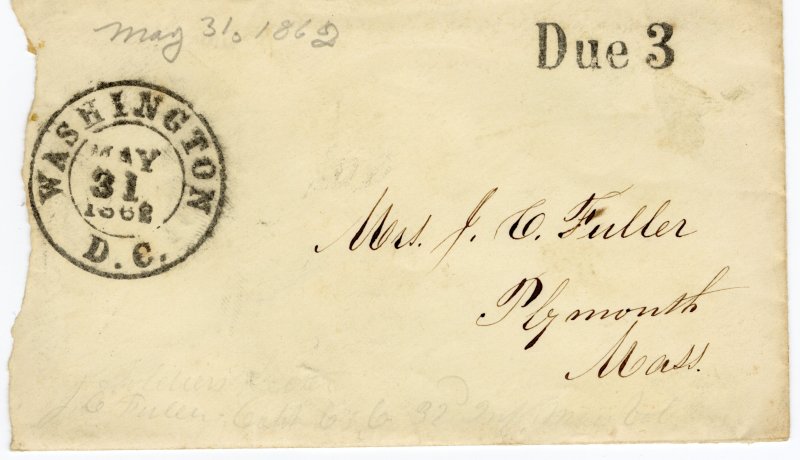 May 31, 1862
Due 3
WASHINGTON
MAY
31
1862
D.C.
Mrs. J. C. Fuller
Plymouth
Mass.
Soldiers
J C Fuller - Capt Co. C 32 Inf Mass Vol